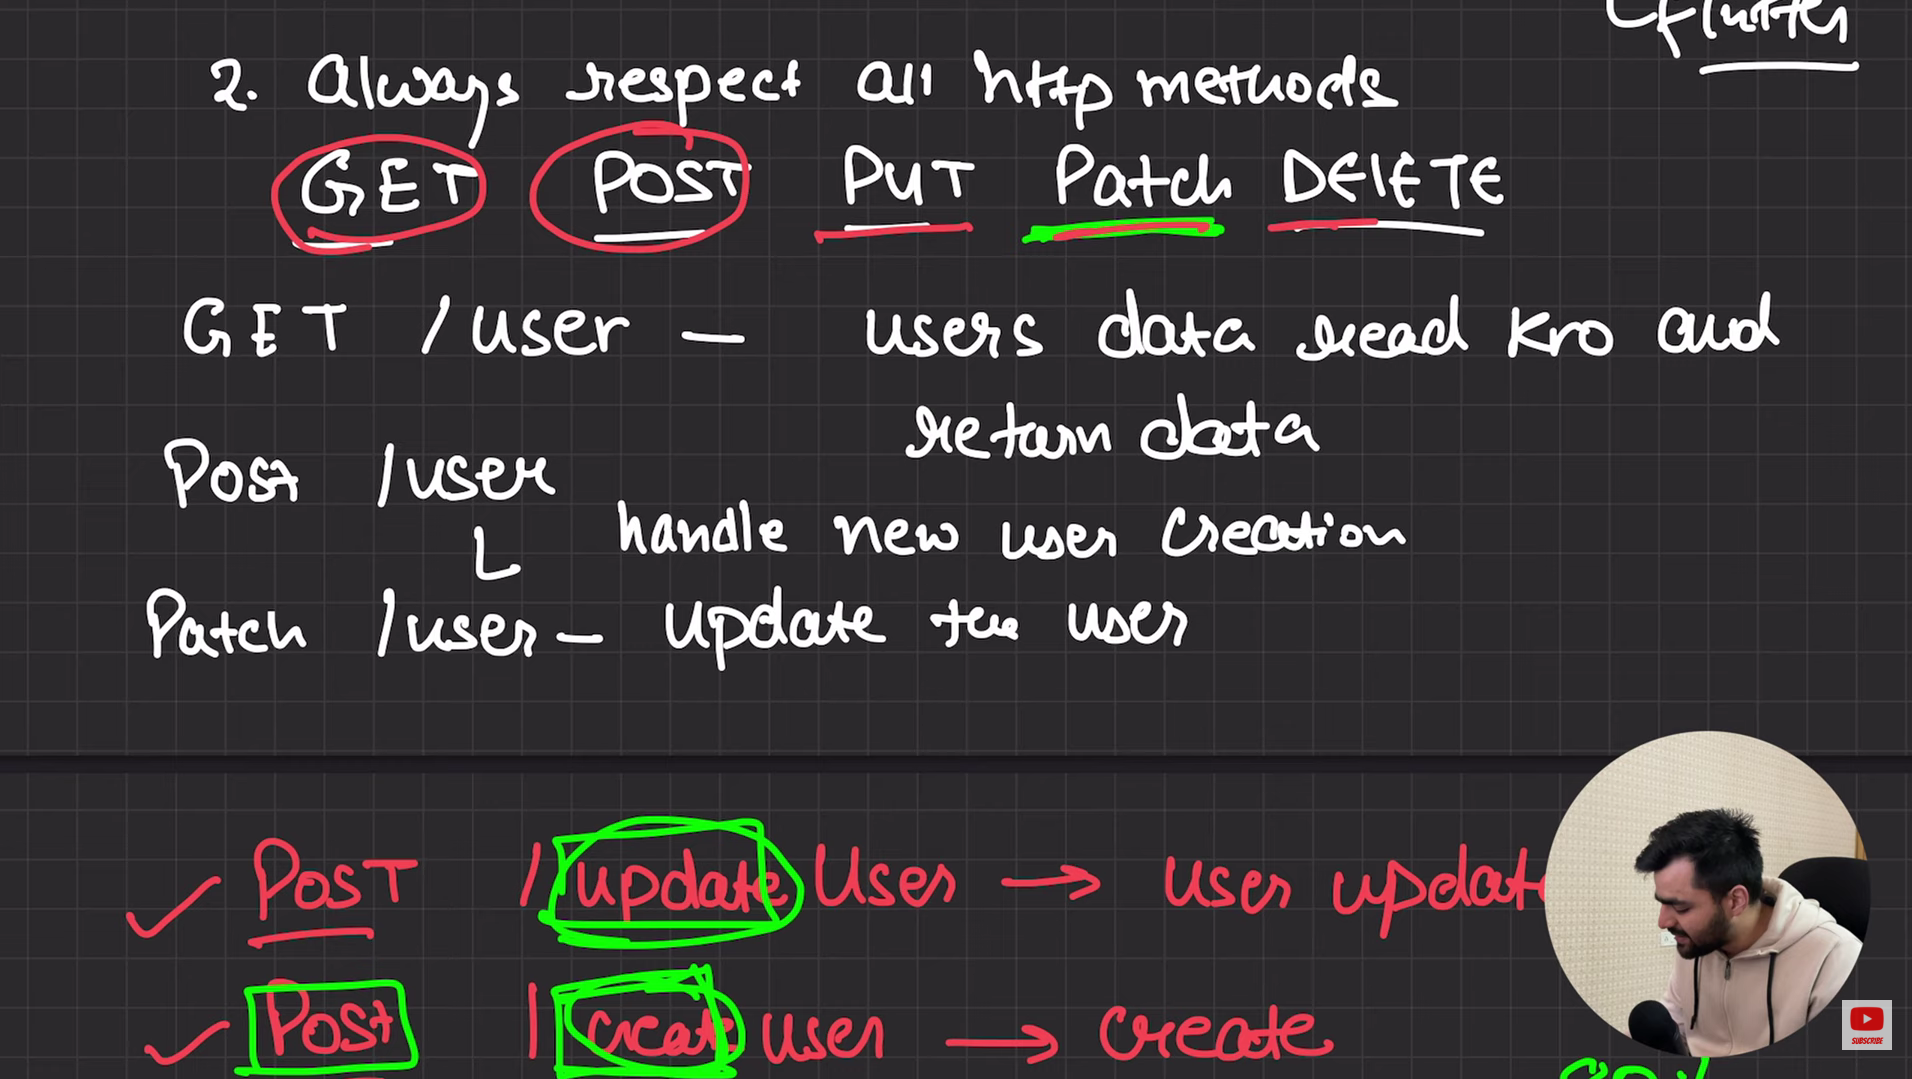 Flutter
2. Always respect all http methods
GET POST PUT Patch DELETE
GET /user — users data read kro and
return data
Post /user
handle new user creation
Patch /user — update the user
POST /update User → user update
Post /create user → create
SUBSCRIBE